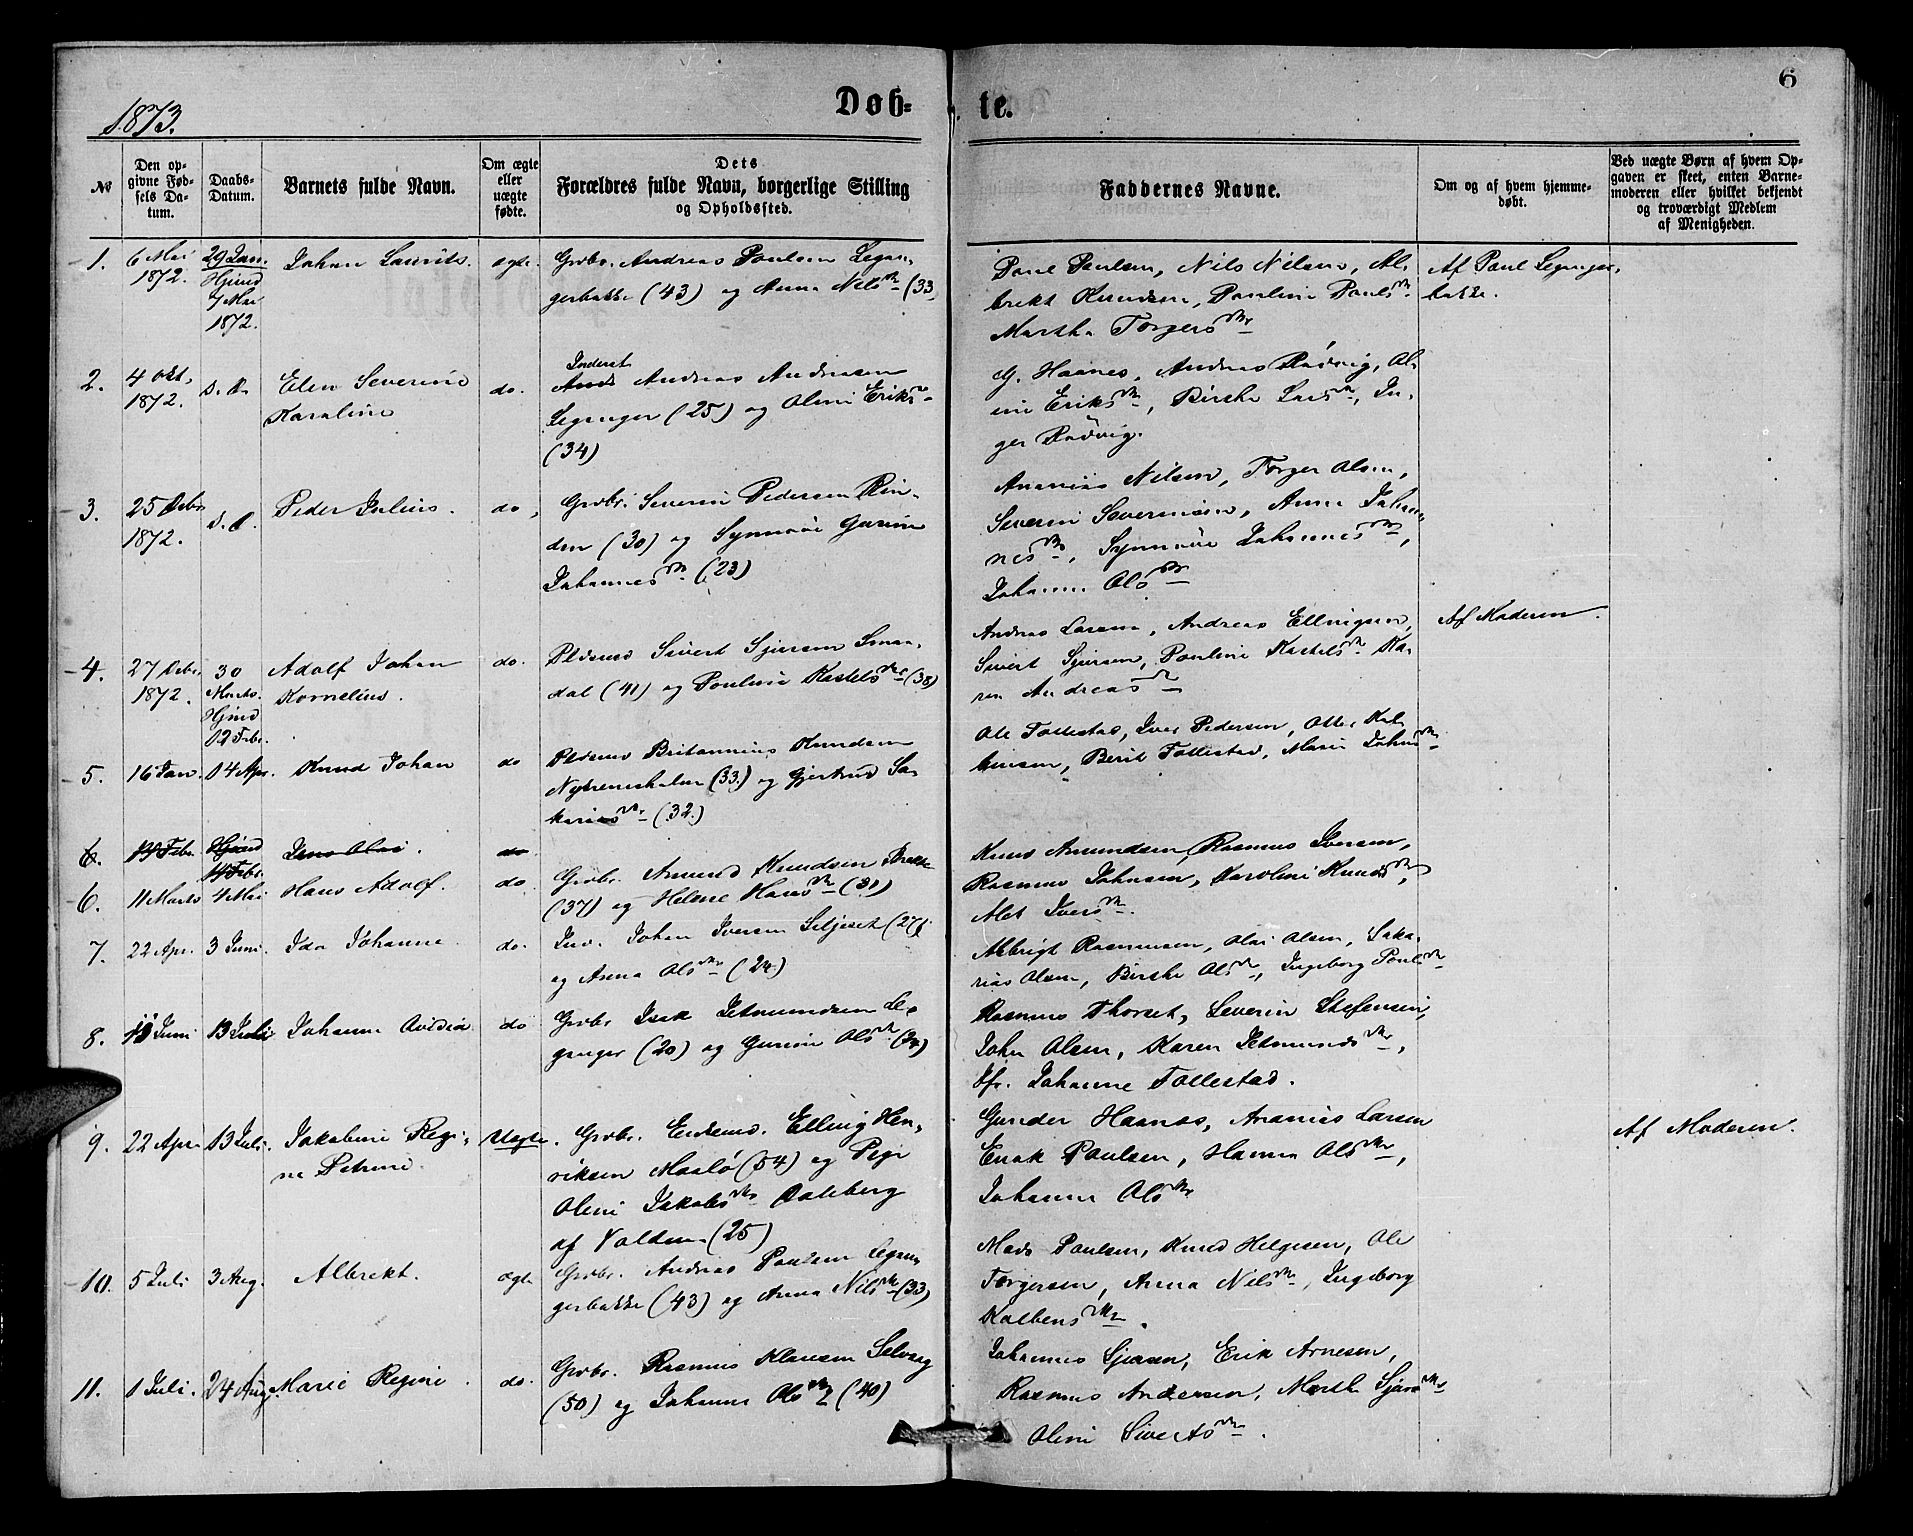 1873.
Døb-
te.
6
№
Den op-
givne Fød-
sels Da-
tum.
Daabs-
Datum.
Barnets fulde Navn.
Om ægte
eller
uægte
fødte.
Dets
Forældres fulde Navn, borgerlige Stilling
og Opholdssted.
Faddernes Navne.
Om og af hvem hjemme-
døbt.
Ved uægte Børn af hvem Op-
gaven er skeet, enten Barne-
moderen eller hvilket bekjendt
og troværdigt Medlem
af Menigheden.
1.
6 Mai
1872.
29 Jan.
Hjmd
7 Mai
1872.
Johan Laurits
ægte.
Grbr. Andreas Poulsen Legan-
gerbakke (43) og Anna Nilsdtr (33
Poul Poulsen, Nils Nilsen, Al-
brekt Knudsen, Pauline Poulsdtr
Martha Torgersdtr
Af Poul Leganger-
bakke.
2.
4 Okt.
1872.
s. D.
Elen Severine
Karoline
do.
Inderst
Andreas Andreasen
Leganger (25) og Oline Eriks-
(34)
G. Haanes, Andreas Rødvig, Ol-
ine Eriksdtr, Birthe Larsdtr, In-
ger Rødvig.
3.
25 Debr
1872.
s. D.
Peder Julius.
do,
Grbr. Severin Pedersen Rin-
den (30) og Synnøve Gurine
Johannesdtr (23)
Ananias Nilsen, Torger Olsen,
Severin Severinsen, Anna Johan-
nesdtr, Synnøve Johannesdtr,
Johanne Olsdtr
4.
27 Debr.
1872.
30
Marts.
Hjmd
12 Febr.
Adolf Johan
Kornelius.
do.
Pldsmd Sivert Sjursen Smaa-
dal (41) og Pouline Kastelsdtr (38)
Andreas Larsen, Andreas Ellingsen,
Sivert Sjursen, Pouline Kastelsdtr Ka-
ren Andreasdtr
Af Moderen.
5.
16 Jan.
14 Apr.
Knud Johan
do
Pldsmd Britannius Knudsen
(33.) og Gjertrud Sa-
kariasdtr (32.)
Ole Follestad, Iver Pedersen, Otter Kol-
bensen, Berit Follestad, Marie Johnsdtr
6.
Febr.
Hjmd
Febr.
Jens Olai.
do
6.
11 Marts
4 Mai
Hans Adolf.
do.
Grbr. Amund Knudsen Brekke
(37) og Helene Hansdtr (31)
Knud Amundsen, Rasmus Iversen,
Rasmus Johnsen, Karoline Knudsdtr,
Alet Iversdtr.
7.
22 Apr.
3 Juni.
Ida Johanne.
do.
Inv. Johan Iversen Siljeset (27)
og Anna Olsdtr (24)
Albrigt Rasmussen, Olai Olsen, Saka-
rias Olsen, Birthe Olsdtr, Ingeborg Poulsdtr
8.
Juni
13 Juli
Johanne Ovidia
do
Grbr. Isak Jetmundsen Le-
ganger (20) og Gurine Olsdtr (24)
Rasmus Thorset, Severin Stefensen,
John Olsen, Karen Jetmundsdtr,
Jfr. Johanne Follestad.
9.
22 Apr.
13 Juli.
Jakobine Regi-
ne Petrine.
Uægte.
Grbr. Enkemd. Elling Hen-
riksen Masløe (54) og Pige
Oline Jakobsdtr Daleberg
af Volden (25)
Gunder Haanes, Ananias Larsen
Enok Poulsen, Hanna Olsdtr,
Johanne Olsdtr
Af Moderen.
10.
5 Juli
3 Aug.
Albrekt.
ægte
Grbr. Andreas Poulsen Legan-
gerbakke (43) og Anna Nilsdtr (33)
Mads Poulsen, Knud Helgesen, Ole
Torgersen, Anna Nilsdtr, Ingeborg
Kolbensdtr.
11.
1 Juli.
24 Aug.
Marie Regine.
do.
Grbr. Rasmus Klausen Selvaag
(50) og Johanne Olsdtr (40)
Johannes Sjursen, Erik Arnesen,
Rasmus Andersen, Marthe Sjursdtr
Oline Sivertsdtr.